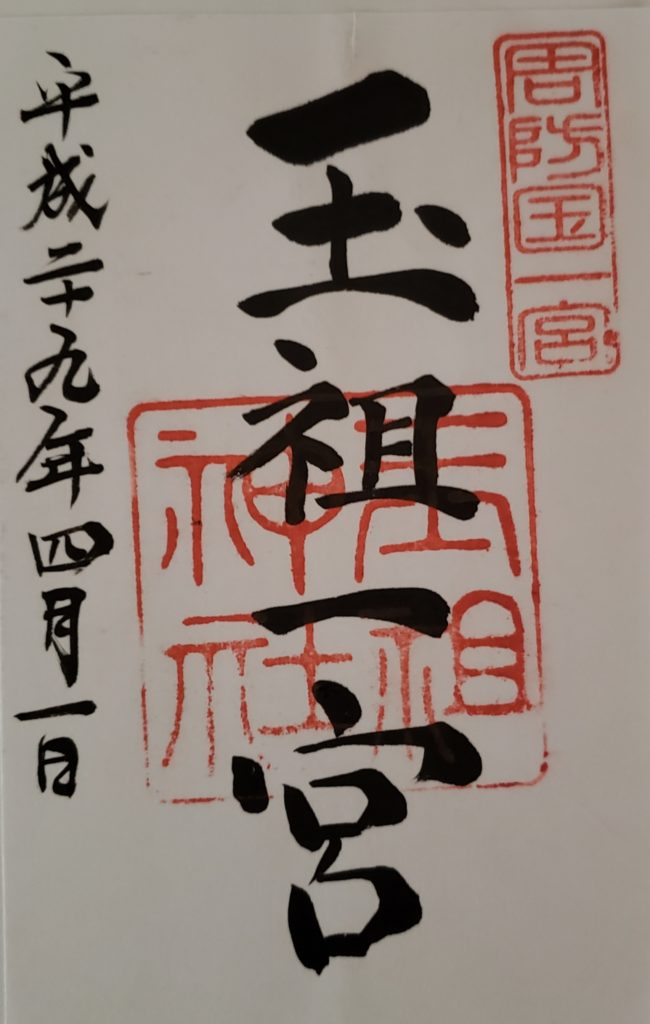 周防国一宮
玉祖一宮
玉祖
神社
平成二十九年四月一日